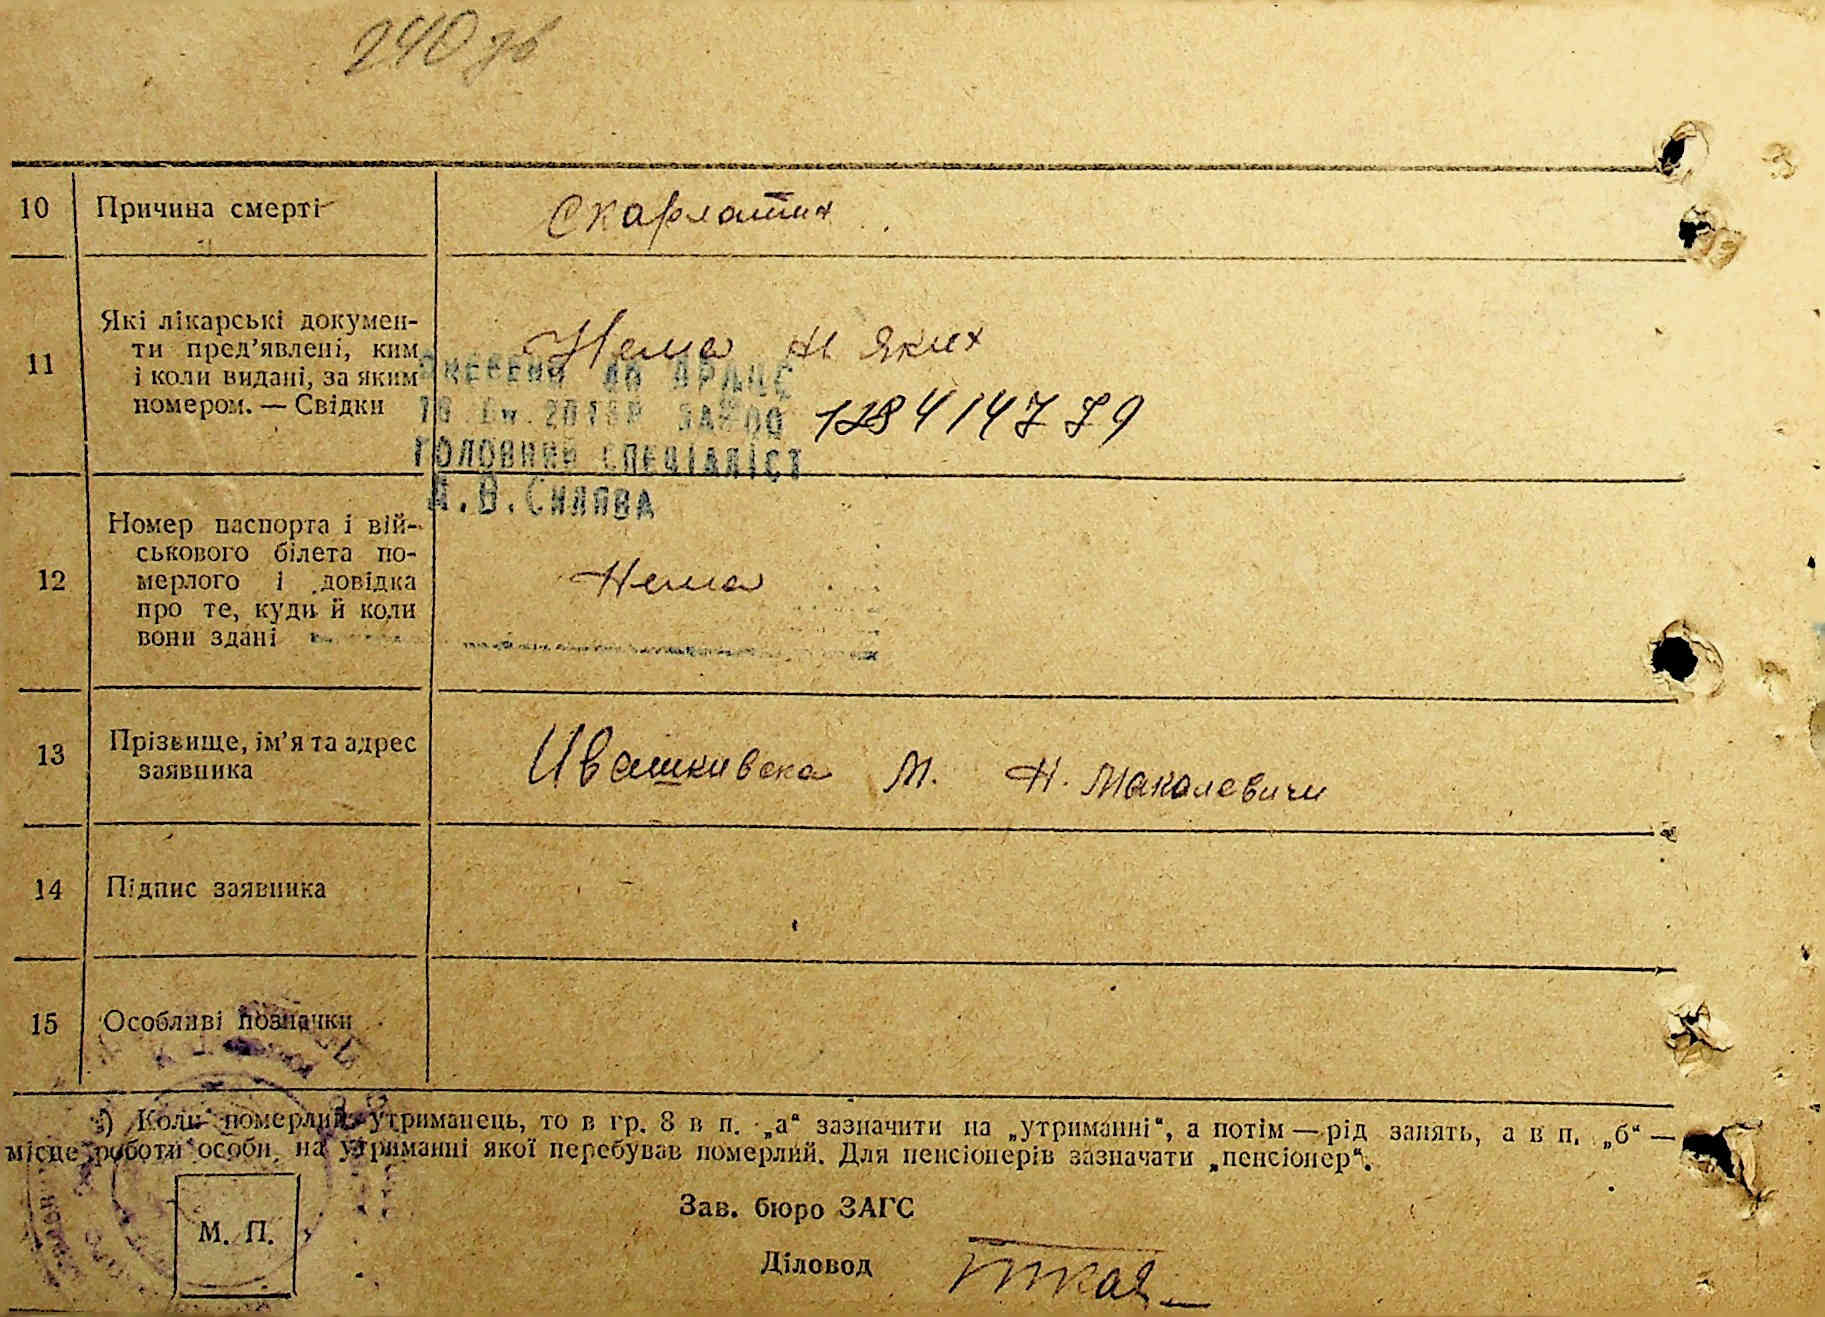 240 зв
10 Причина смерті Скарлатина
11 Які лікарські докумен-
ти пред'явлені, ким
і коли видані, за яким
номером. — Свідки
Нема ні яких
Внесено до ДРАЦС
128414779
ГОЛОВНИЙ СПЕЦІАЛІСТ
12 Номер паспорта і вій-
ськового білета по-
мерлого і довідка
про те, куди й коли
вони здані
Нема
13 Прізвище, ім'я та адрес
заявника
Ивашкивска М. Н. Макалевичи
14 Підпис заявника
15 Особливі позначки
*) Коли померлий утриманець, то в гр. 8 в п. „а“ зазначити на „утриманні“, а потім — рід занять, а в п. „б“ —
місце роботи особи, на утриманні якої перебував померлий. Для пенсіонерів зазначати „пенсіонер“.
Зав. бюро ЗАГС
М. П.
Діловод